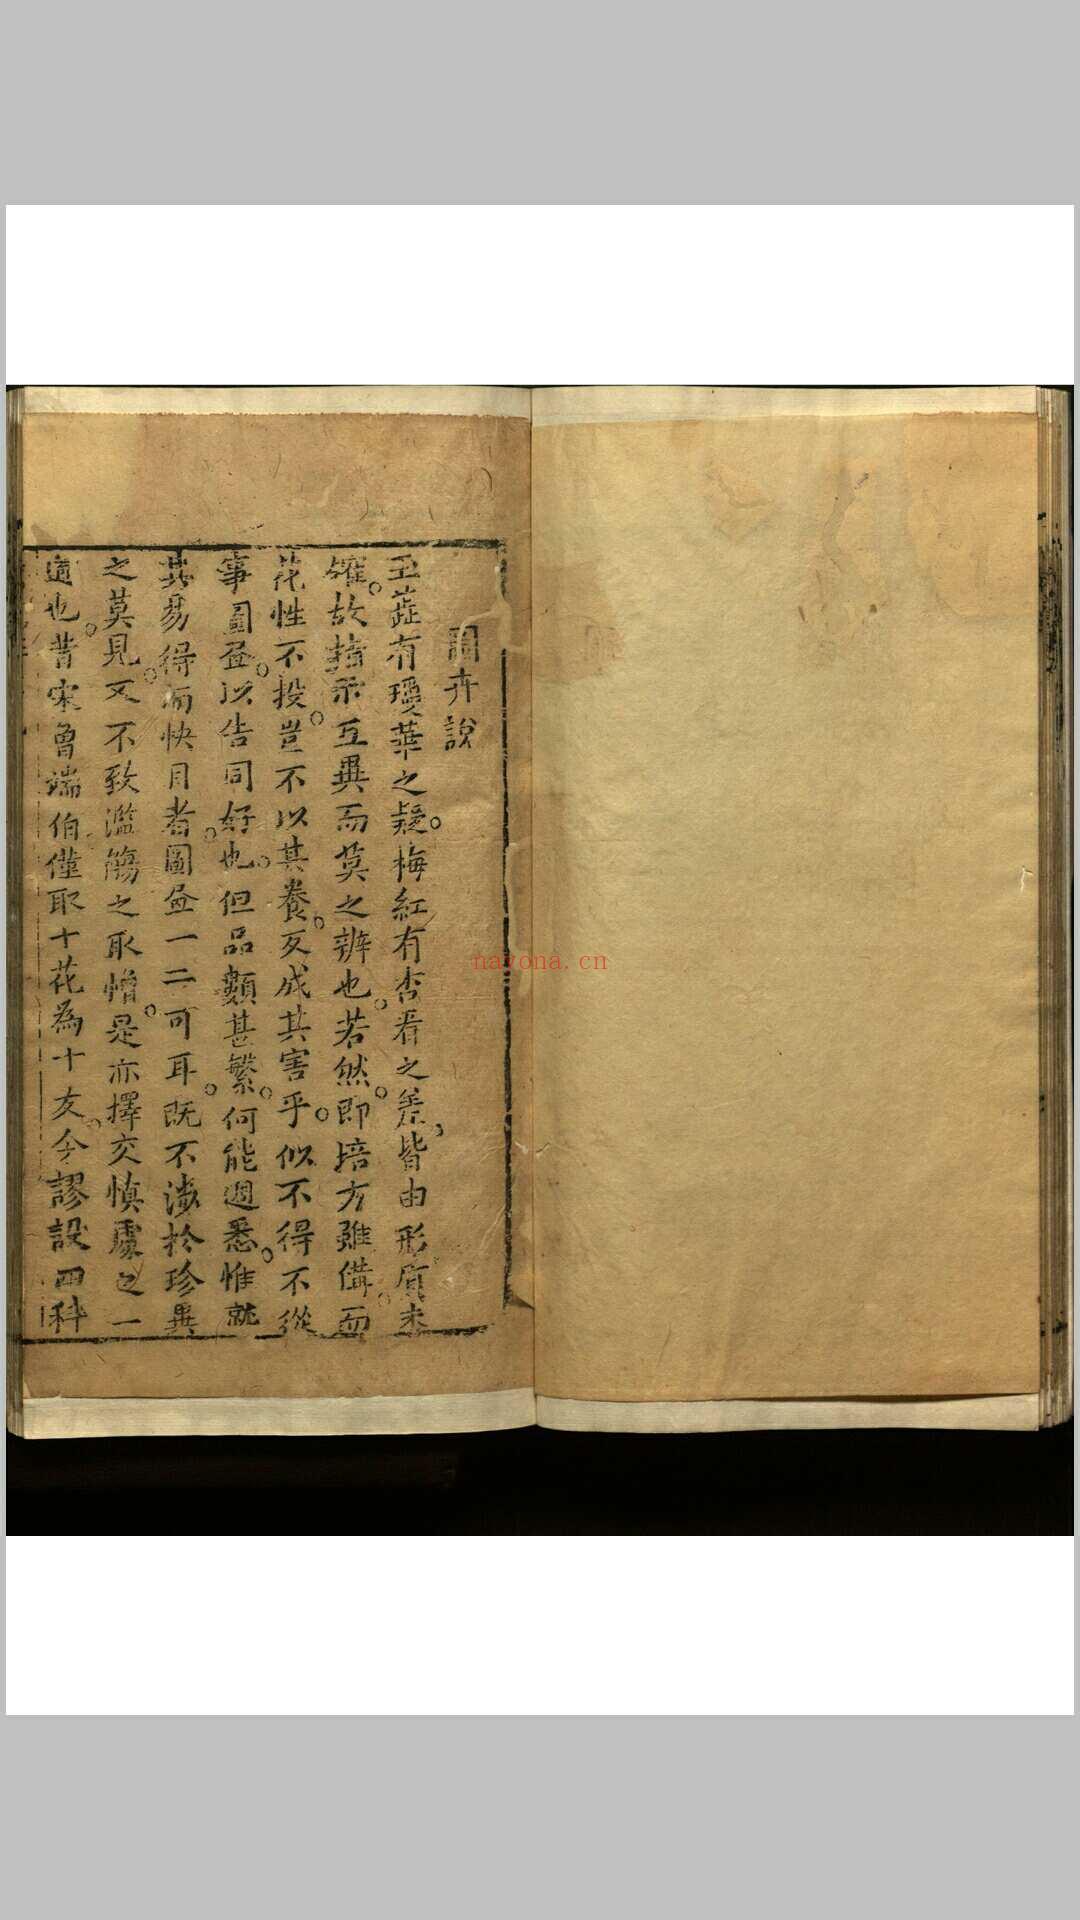 圖卉說
玉蕋有瓊華之疑梅紅有杏看之差皆由形質未
確故指示互異而莫之辨也若然即培方雖備而
花性不投豈不以其養反成其害乎似不得不從
事圖𦘕以告同好也但品類甚繁何能週悉惟就
其易得而快目者圖𦘕一二可耳既不濊於珍異
之莫見又不致濫觴之取憎是亦擇交慎處之一
適也昔宋曾端伯僅取十花為十友今謬設四科
nayona.cn